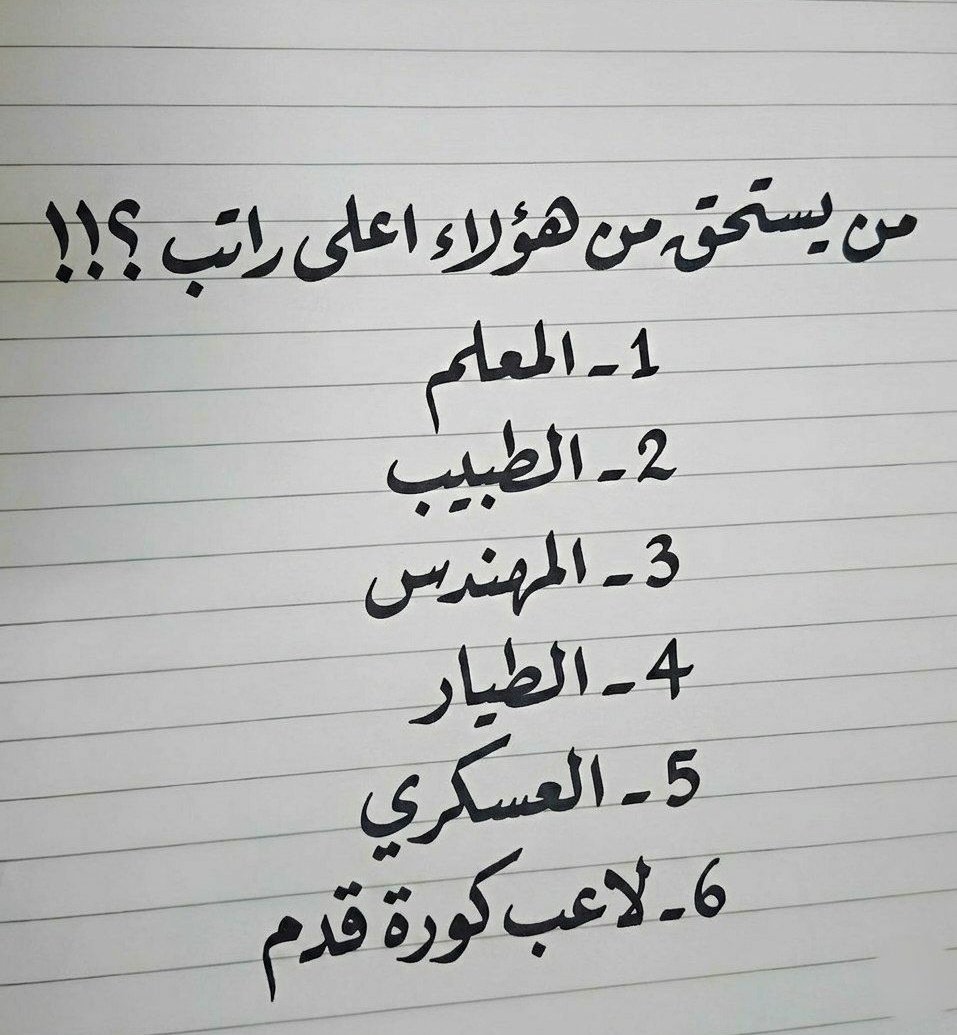 من يستحق من هؤلاء اعلى راتب ؟!!
1 - المعلم
2 - الطبيب
3 - المهندس
4 - الطيار
5 - العسكري
6 - لاعب كورة قدم